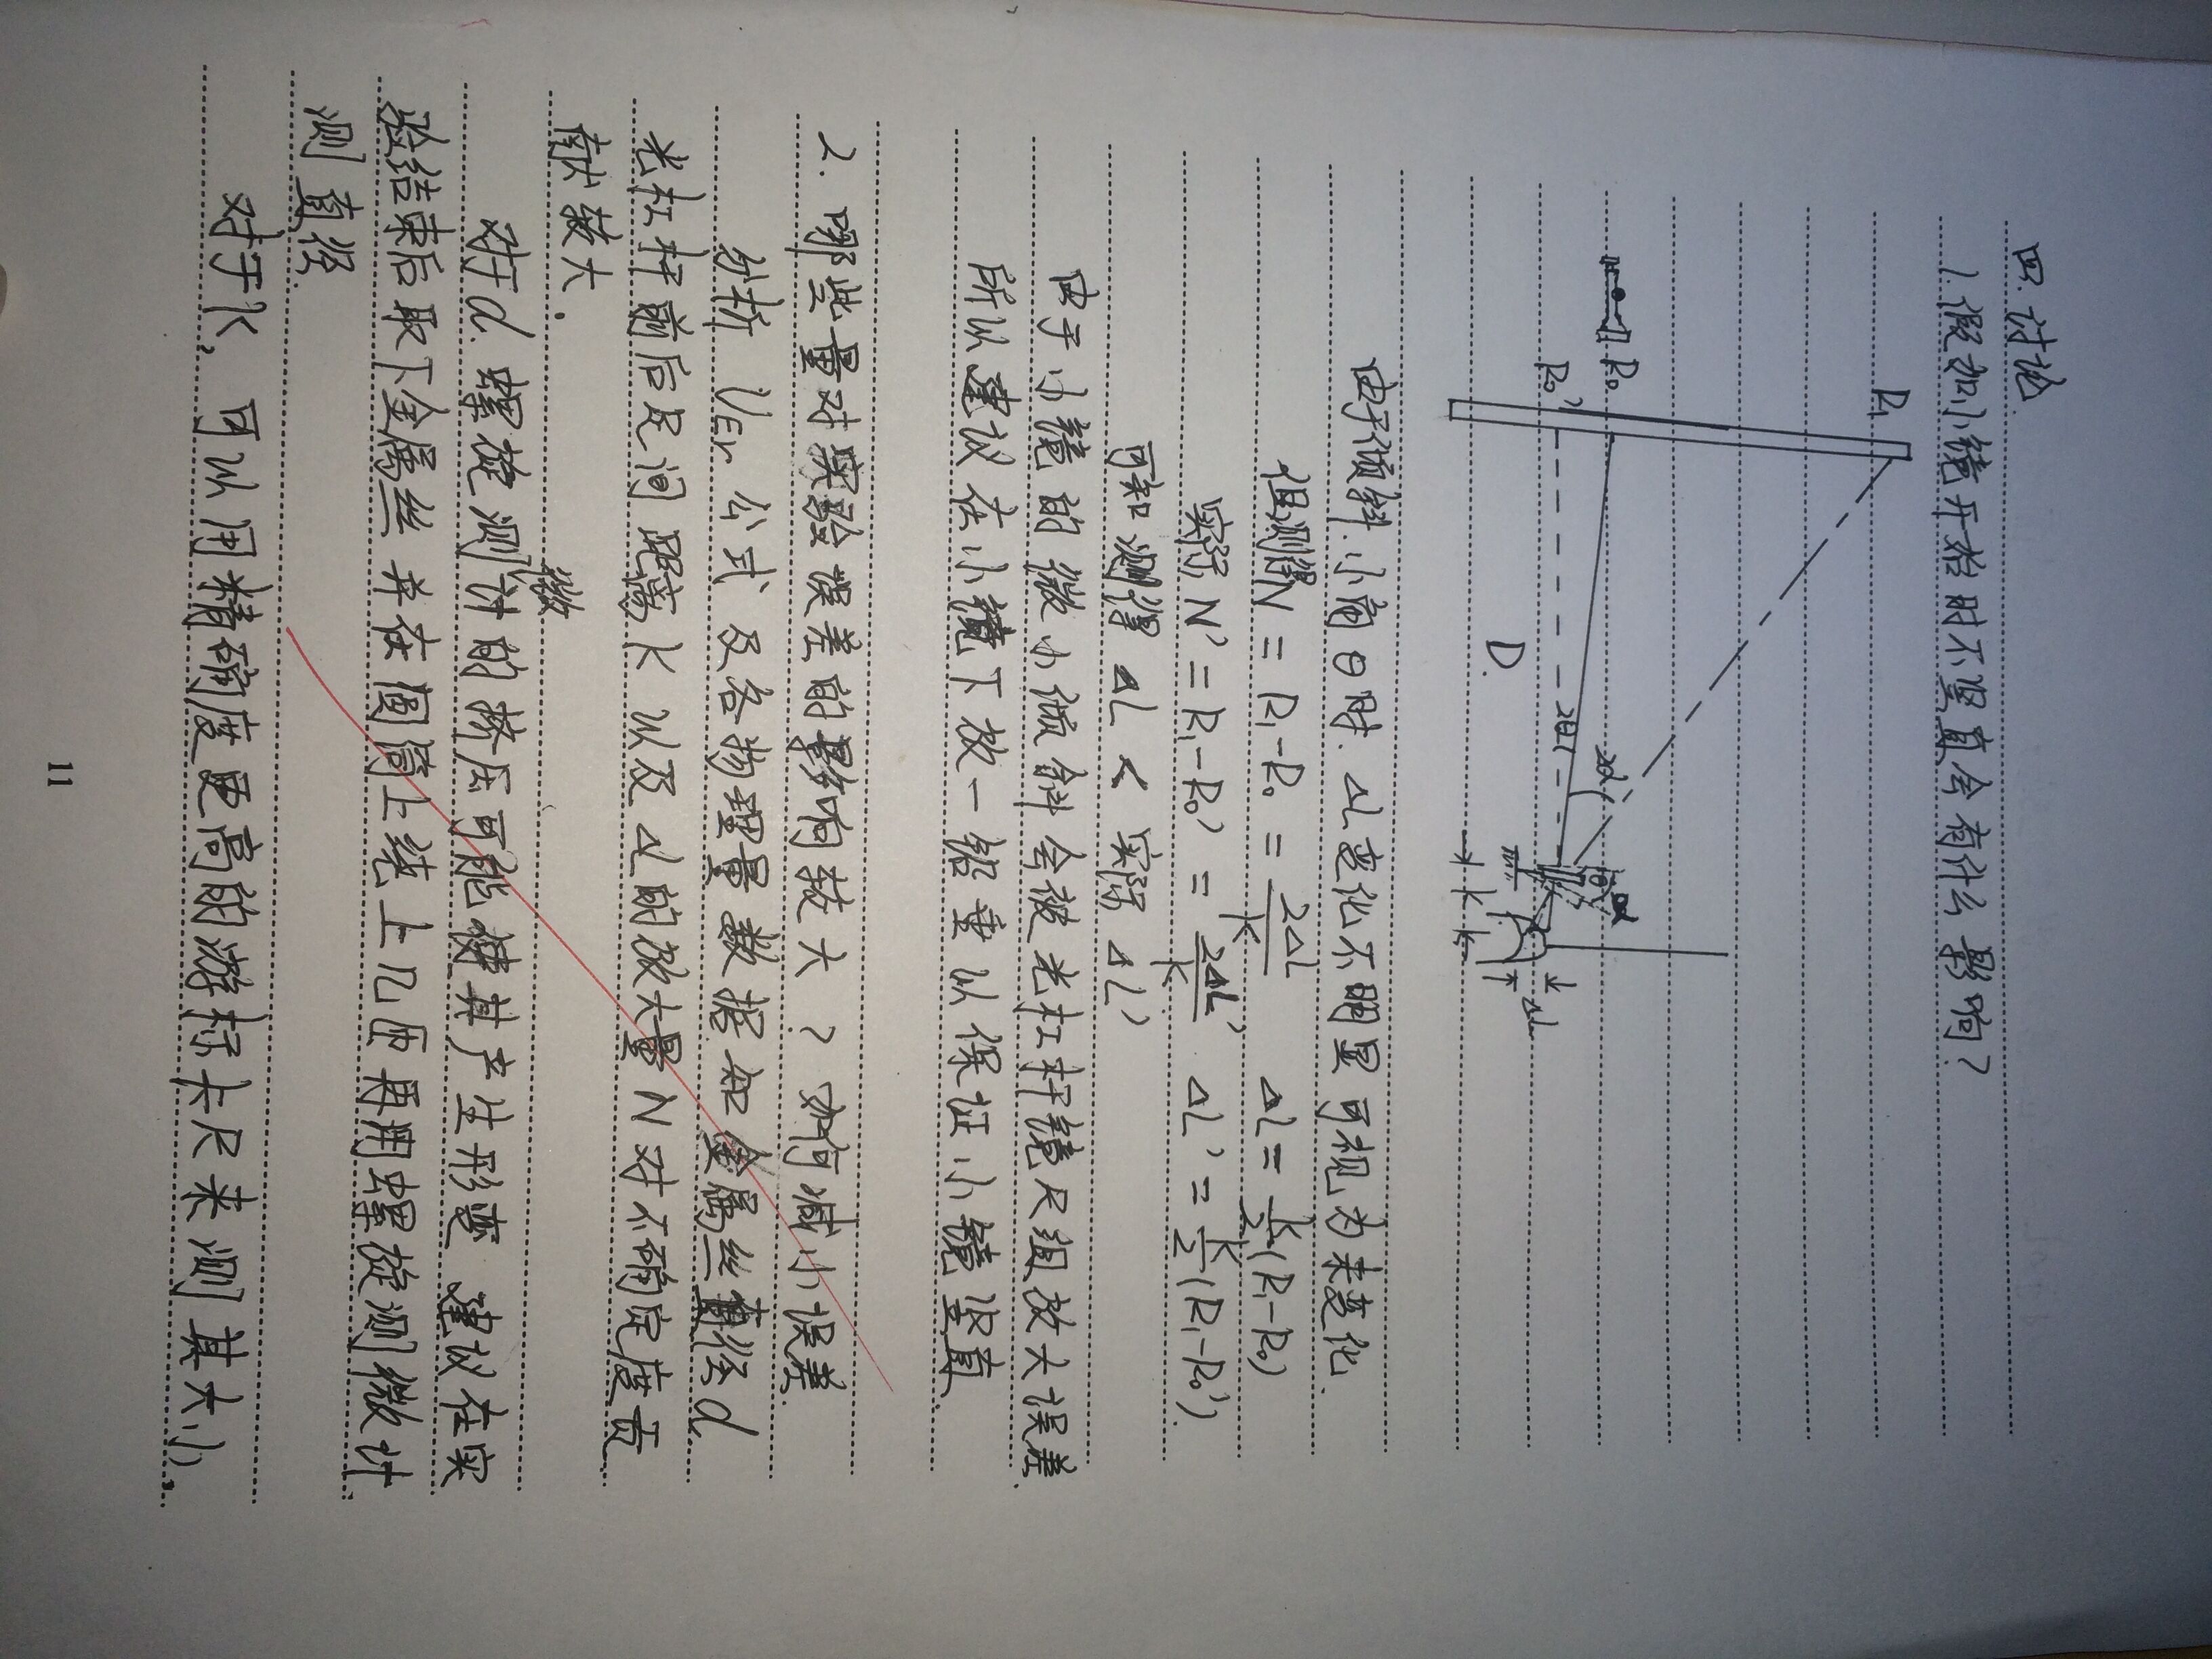 四.讨论
1.假如小镜开始时不竖直会有什么影响?
R₁
R₀
R₀'
D.
2θ
2α
θ
α
k
ΔL
由于倾斜小角θ时.ΔL变化不明显可视为未变化.
但测得N=R₁-R₀=2ΔL/k ΔL=k/2(R₁-R₀)
实际N'=R₁-R₀'=2ΔL'/k ΔL'=k/2(R₁-R₀').
可知测得ΔL<实际ΔL'
由于小镜的微小倾斜会被光杠杆镜尺组放大误差.
所以建议在小镜下放一铅垂以保证小镜竖直.
2.哪些量对实验误差的影响较大?如何减小误差
分析UEr公式及各物理量数据知金属丝直径d.
光杠杆前后足间距离k以及ΔL的放大量N对不确定度贡
献较大.
对于d.螺旋测微计的挤压可能使其产生形变 建议在实
验结束后取下金属丝并在圆筒上绕上几匝再用螺旋测微计
测直径.
对于k,可以用精确度更高的游标卡尺来测其大小.
11